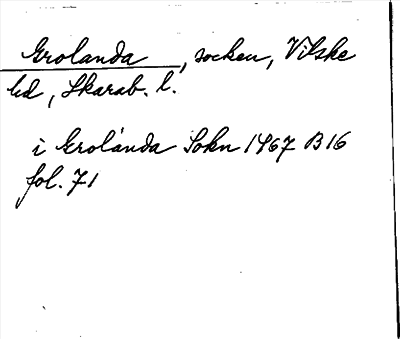 Grolanda, socken, Vilske
hd, Skarab. l.
i Grolanda Sokn 1467 B16
fol. 71